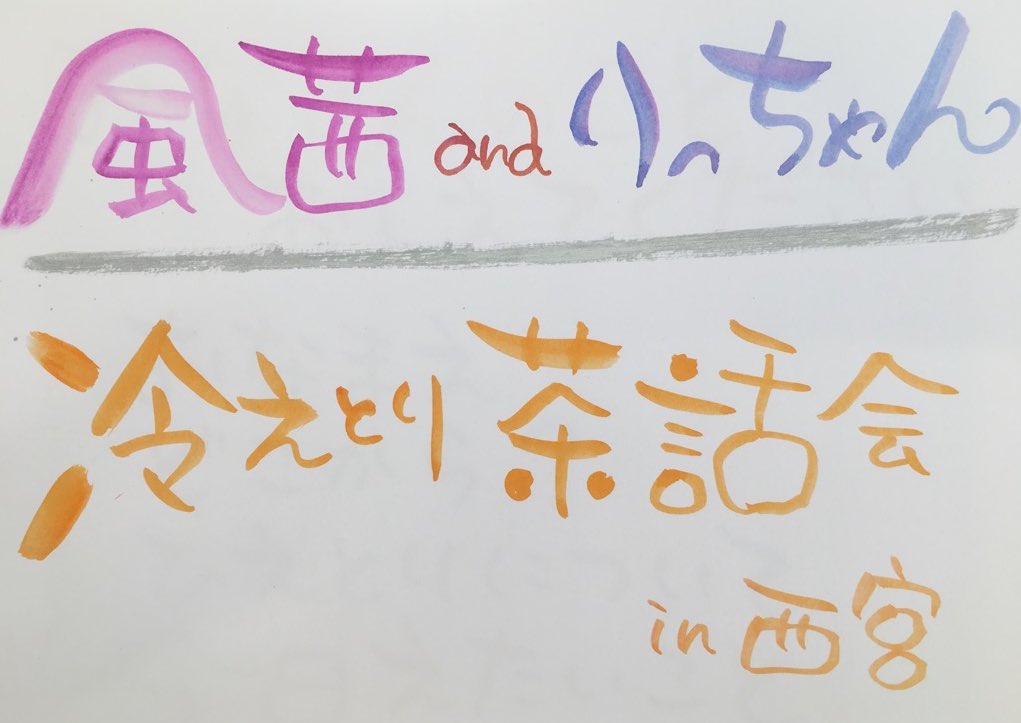 風茜andりっちゃん
冷えとり茶話会
in西宮